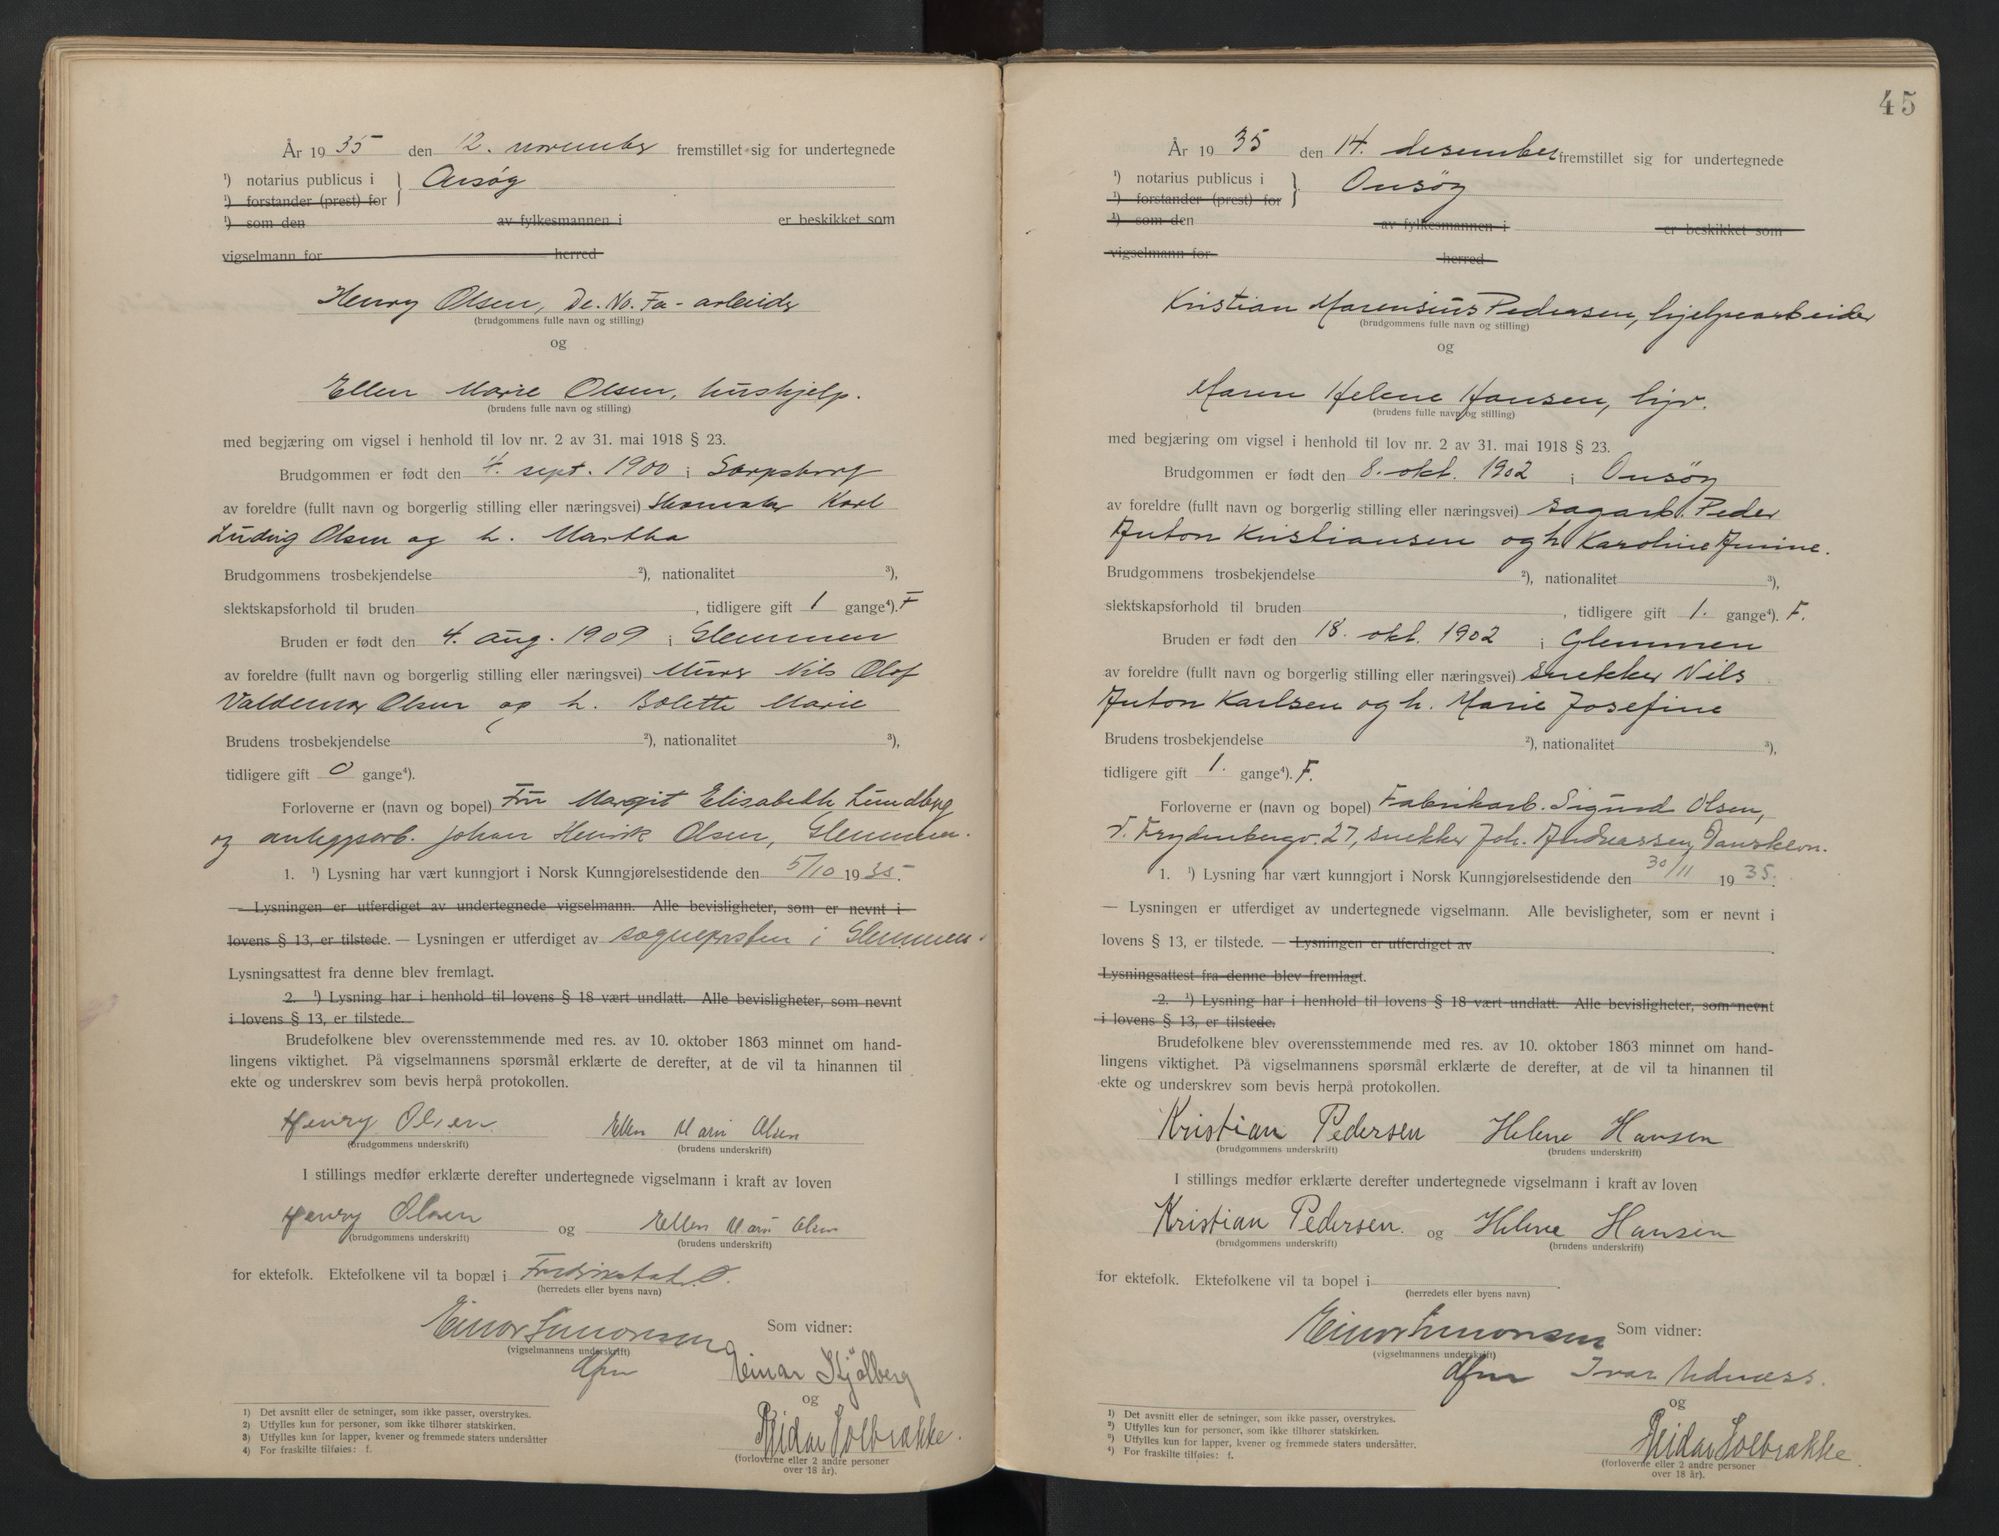 År 19 35 den 12. november fremstillet sig for undertegnede
¹) notarius publicus i } Onsøy
¹) forstander (prest) for
¹) som den av fylkesmannen i er beskikket som
vigselmann for herred
Henry Olsen, De. No. Fa - arbeider
(brudgommens fulle navn og stilling)
og
Ellen Marie Olsen, hushjelp.
(brudens fulle navn og stilling)
med begjæring om vigsel i henhold til lov nr. 2 av 31. mai 1918 § 23.
Brudgommen er født den 4. sept. 1900 i Sarpsborg
av foreldre (fullt navn og borgerlig stilling eller næringsvei) Skomaker Karl
Ludvig Olsen og h. Martha
Brudgommens trosbekjendelse ²), nationalitet ³),
slektskapsforhold til bruden , tidligere gift 1 gange⁴). F
Bruden er født den 4. aug. 1909 i Glemmen
av foreldre (fullt navn og borgerlig stilling eller næringsvei) Murer Nils Olof
Valdemar Olsen og h. Bolette Marie
Brudens trosbekjendelse ²), nationalitet ³),
tidligere gift 0 gange⁴).
Forloverne er (navn og bopel) Fru Margit Elisabeth Lundberg
og anleggsarb. Johan Henrik Olsen, Glemmen.
1. ¹) Lysning har vært kunngjort i Norsk Kunngjørelsestidende den 5/10 1935.
— Lysningen er utferdiget av undertegnede vigselmann. Alle bevisligheter, som er nevnt i
lovens § 13, er tilstede. — Lysningen er utferdiget av sogneprsten i Glemmen.
Lysningsattest fra denne blev fremlagt.
2. ¹) Lysning har i henhold til lovens § 18 vært undlatt. Alle bevisligheter, som nevnt
i lovens § 13, er tilstede.
Brudefolkene blev overensstemmende med res. av 10. oktober 1863 minnet om hand-
lingens viktighet. På vigselmannens spørsmål erklærte de derefter, at de vil ta hinannen til
ekte og underskrev som bevis herpå protokollen.
Henry Olsen. Ellen Marie Olsen
(brudgommens underskrift) (brudens underskrift)
I stillings medfør erklærte derefter undertegnede vigselmann i kraft av loven
Henry Olsen og Ellen Marie Olsen
(brudgommens underskrift) (brudens underskrift)
for ektefolk. Ektefolkene vil ta bopæl i Fredrikstad. O.
(herredets eller byens navn)
Einar Simonsen Som vidner:
(vigselmannens underskrift)
dfm Einar Kjølberg
og
Reidar Solbrække.
(forloverne eller 2 andre personer
over 18 år).
1) Det avsnitt eller de setninger, som ikke passer, overstrykes.
2) Utfylles kun for personer, som ikke tilhører statskirken.
3) Utfylles kun for lapper, kvener og fremmede staters undersåtter
4) For fraskilte tilføies: f.
45
År 19 35 den 14. desember fremstillet sig for undertegnede
¹) notarius publicus i } Onsøy
¹) forstander (prest) for
¹) som den av fylkesmannen i er beskikket som
vigselmann for herred
Kristian Marensius Pedersen, hjelpearbeider
(brudgommens fulle navn og stilling)
og
Maren Helene Hansen, hjv.
(brudens fulle navn og stilling)
med begjæring om vigsel i henhold til lov nr. 2 av 31. mai 1918 § 23.
Brudgommen er født den 8. okt. 1902 i Onsøy
av foreldre (fullt navn og borgerlig stilling eller næringsvei) sagarb. Peder
Anton Kristiansen og h. Karoline Amine.
Brudgommens trosbekjendelse ²), nationalitet ³),
slektskapsforhold til bruden , tidligere gift 1. gange⁴). F.
Bruden er født den 18. okt. 1902 i Glemmen
av foreldre (fullt navn og borgerlig stilling eller næringsvei) snekker Nils
Anton Karlsen og h. Marie Josefine
Brudens trosbekjendelse ²), nationalitet ³),
tidligere gift 1. gange⁴). F.
Forloverne er (navn og bopel) Fabrikarb. Sigurd Olsen,
Frydenbergv. 27, snekker Joh. Andreassen, Danskevn.
1. ¹) Lysning har vært kunngjort i Norsk Kunngjørelsestidende den 30/11 19 35.
— Lysningen er utferdiget av undertegnede vigselmann. Alle bevisligheter, som er nevnt i
lovens § 13, er tilstede. — Lysningen er utferdiget av
Lysningsattest fra denne blev fremlagt.
2. ¹) Lysning har i henhold til lovens § 18 vært undlatt. Alle bevisligheter, som nevnt
i lovens § 13, er tilstede.
Brudefolkene blev overensstemmende med res. av 10. oktober 1863 minnet om hand-
lingens viktighet. På vigselmannens spørsmål erklærte de derefter, at de vil ta hinannen til
ekte og underskrev som bevis herpå protokollen.
Kristian Pedersen Helene Hansen
(brudgommens underskrift) (brudens underskrift)
I stillings medfør erklærte derefter undertegnede vigselmann i kraft av loven
Kristian Pedersen. og Helene Hansen
(brudgommens underskrift) (brudens underskrift)
for ektefolk. Ektefolkene vil ta bopel i
(herredets eller byens navn)
Einar Simonsen Som vidner:
(vigselmannens underskrift)
dfm Ivar Udnæss.
og
Reidar Solbrække.
(forloverne eller 2 andre personer
over 18 år).
1) Det avsnitt eller de setninger, som ikke passer, overstrykes.
2) Utfylles kun for personer, som ikke tilhører statskirken.
3) Utfylles kun for lapper, kvener og fremmede staters undersåtter.
4) For fraskilte tilføies: f.